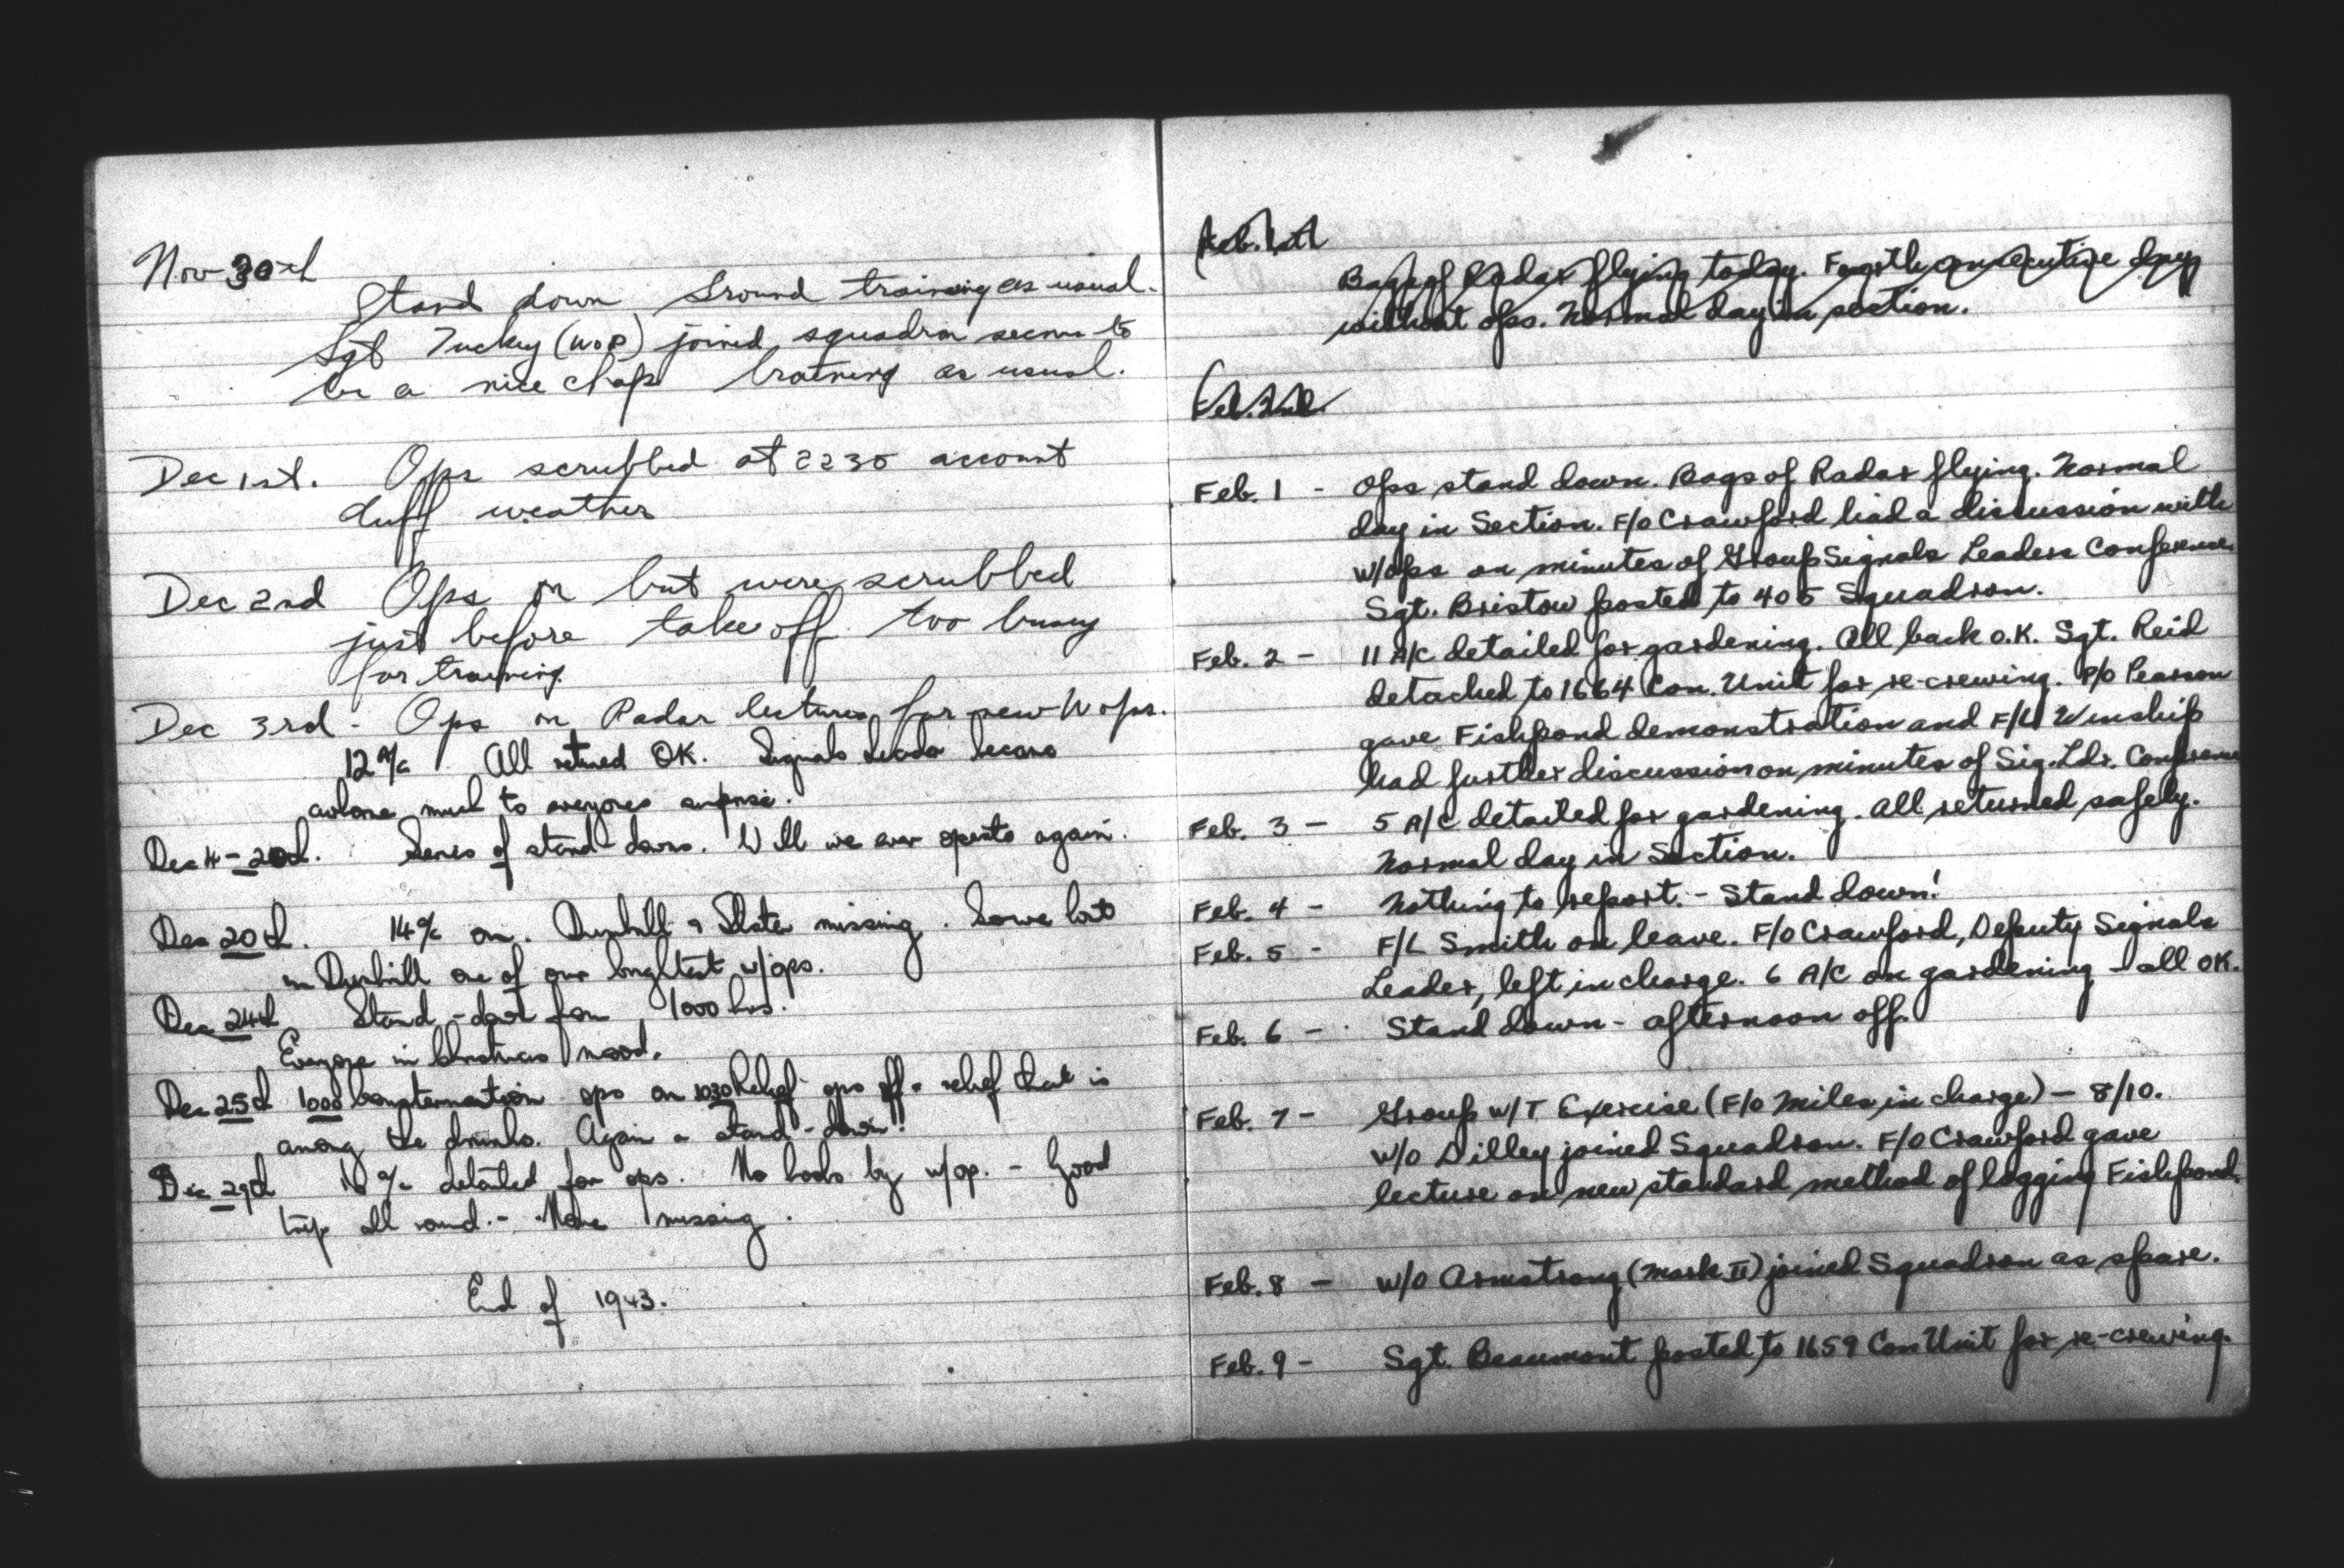 Nov 30th
Stand down Ground training as usual.
Sgt Tuckey (WOP) joined squadron seems to
be a nice chap training as usual.
Dec 1st. Ops scrubbed at 2230 account
duff weather
Dec 2nd Ops on but were scrubbed
just before take off too busy
for training
Dec 3rd - Ops on Radar lectures for new W ops.
12 A/C All returned OK. Signals Leader became
airborne much to everyones surprise.
Dec 4 - 20th. Series of stand-downs. Will we ever operate again.
Dec 20th. 14 A/C on. Dunhill & Slater missing. Sowe lost
in Dunhill one of our brightest w/ops.
Dec 24th Stand-down from 1000 hrs.
Everyone in Christmas mood.
Dec 25th 1000 Consternation ops on 1030 Relief ops off - relief that is
among the drunks. Again a stand-down!
Dec 29th A/C detailed for ops. No boobs by w/op. - Good
trip all round. - None missing.
End of 1943.
Feb. 1st
Bags of Radar flying today. Fourth consecutive day
without ops. Normal day in section.
Feb. 2nd.
Feb. 1 - Ops stand down. Bags of Radar flying. Normal
day in Section. F/O Crawford had a discussion with
W/Ops on minutes of Group Signals Leaders Conference.
Sgt. Bristow posted to 405 Squadron.
Feb. 2 - 11 A/C detailed for gardening. All back O.K. Sgt. Reid
detached to 1664 Con. Unit for re-crewing. P/O Pearson
gave Fishpond demonstration and F/Lt Winship
had further discussion on minutes of Sig. Ldr. Conference
Feb. 3 - 5 A/C detailed for gardening. All returned safely.
Normal day in Section.
Feb. 4 - Nothing to report. - Stand down!
Feb. 5 - F/L Smith on leave. F/O Crawford, Deputy Signals
Leader, left in charge. 6 A/C on gardening - all OK.
Feb. 6 - Stand down - afternoon off.
Feb. 7 - Group W/T Exercise (F/O Miles in charge) - 8/10.
W/O Dilley joined Squadron. F/O Crawford gave
lecture on new standard method of logging Fishpond.
Feb. 8 - W/O Armstrong (Mark II) joined Squadron as spare.
Feb. 9 - Sgt. Beaumont posted to 1659 Con Unit for re-crewing.